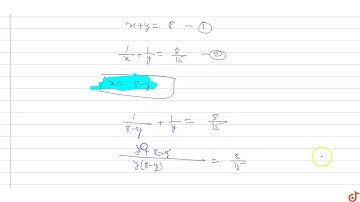 x+y = 8 - ①
1/x + 1/y = 8/15 - ②
x = 8-y
1/(8-y) + 1/y = 8/15
(y + 8-y)/(y(8-y)) = 8/15